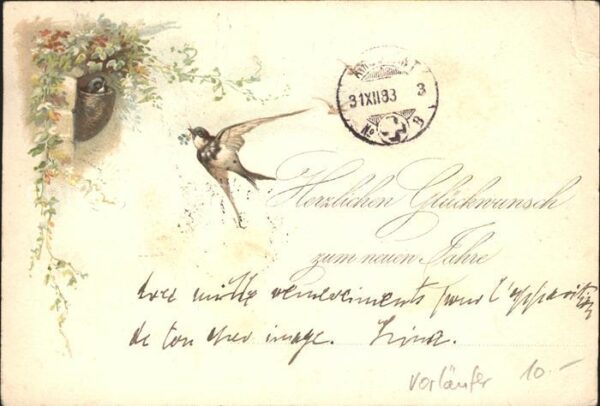 31XII83 3
No B
Herzlichen Glückwunsch
zum neuen Jahre
avec mille remerciments pour l'apparition
de ton cher image.
Vorläufer 10.-